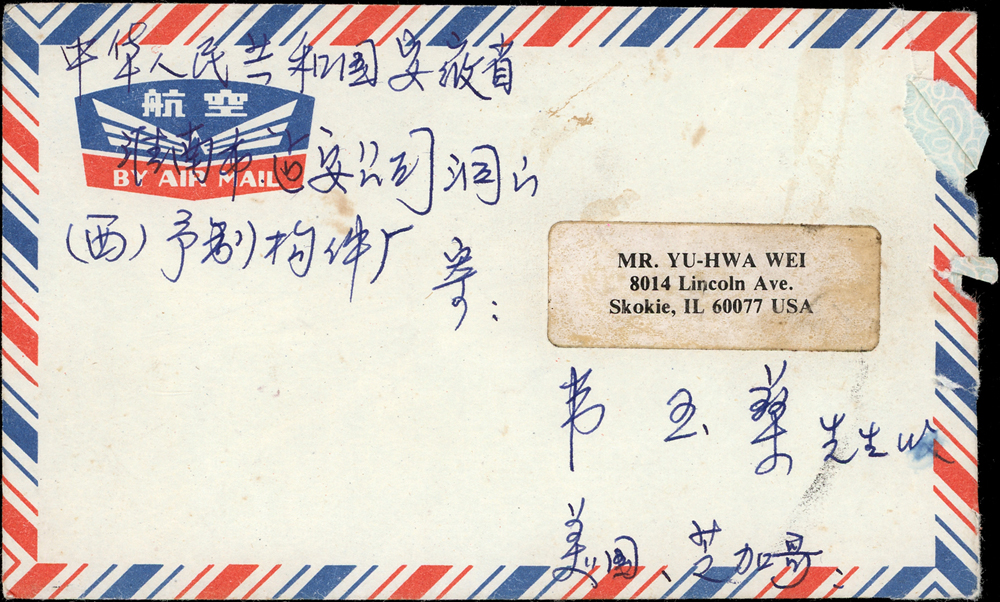 中华人民共和国安徽省
航空
淮南市 安公司洞山
BY AIR MAIL
(西)予制构件厂
寄:
MR. YU-HWA WEI
8014 Lincoln Ave.
Skokie, IL 60077 USA
韦玉 先生收
美国、芝加哥: